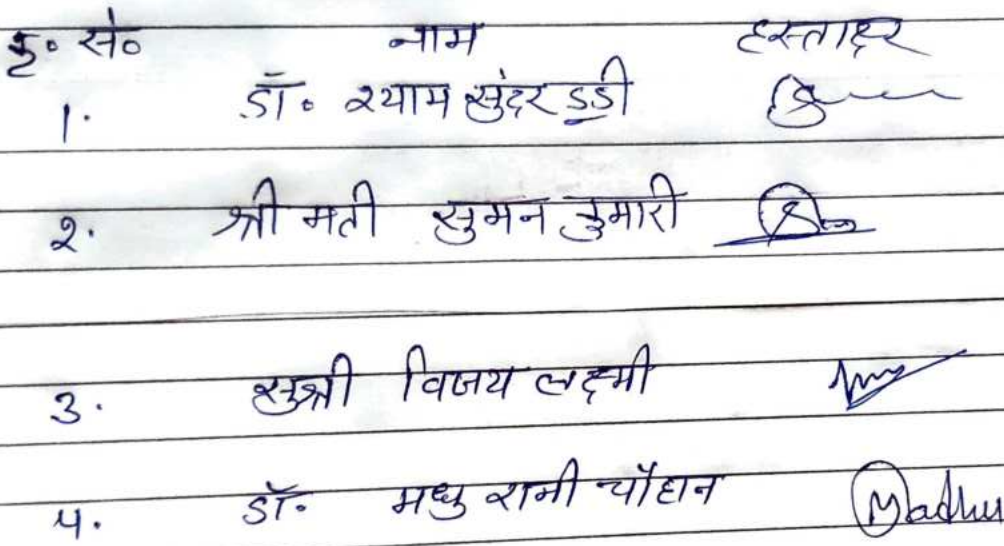 क्र० सं० नाम हस्ताक्षर
1. डॉ० श्याम सुंदर
2. श्री मती सुमन कुमारी
3. सुश्री विजय लक्ष्मी
4. डॉ. मधु रानी चौहान Madhu